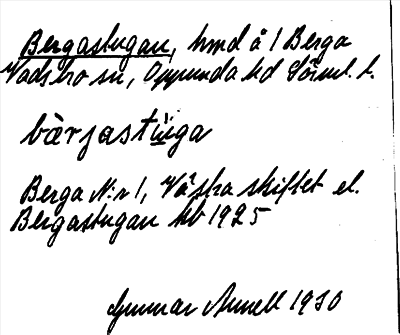 Bergastugan, hmd å 1 Berga
Vadsbro sn, Oppunda hd Söml. l.
bàrjastùga
Berga N:r 1, Västra skiftet el.
Bergastugan kb 1925
Gunnar Arnell 1930